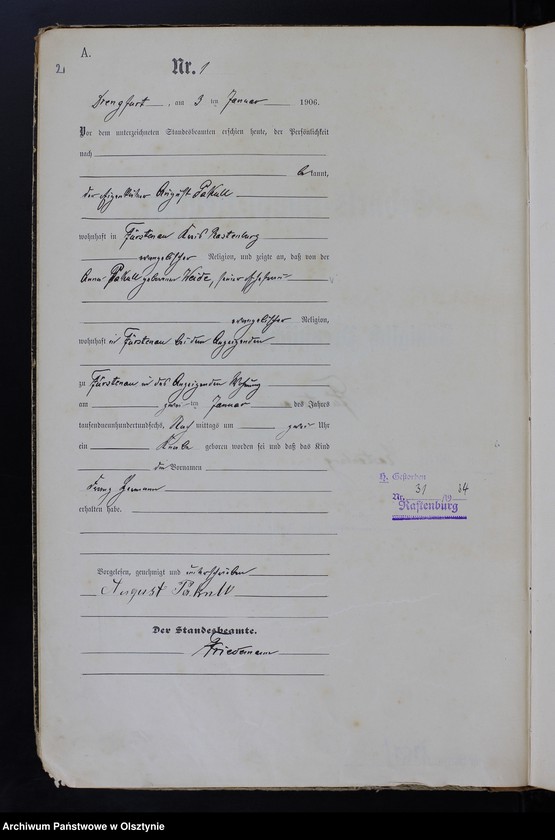 A.
2
Nr. 1
Drengfurt, am 3 ten Januar 1906.
Vor dem unterzeichneten Standesbeamten erschien heute, der Persönlichkeit
nach
be kannt,
der Eigenkätner August Pakull
wohnhaft in Fürstenau Kreis Rastenburg
evangelischer Religion, und zeigte an, daß von der
Anna Pakull geborenen Weide, seiner Ehefrau
evangelischer Religion,
wohnhaft in Fürstenau bei dem Anzeigenden
zu Fürstenau in des Anzeigenden Wohnung
am zwei ten Januar des Jahres
tausendneunhundertundsechs, Nach mittags um zwei Uhr
ein Knabe geboren worden sei und daß das Kind
den Vornamen
Franz Hermann
erhalten habe.
Vorgelesen, genehmigt und unterschrieben
August Pakull
Der Standesbeamte.
Friedemann
H. Gestorben
Nr. 31 /19 34
Rastenburg
Archiwum Państwowe w Olsztynie